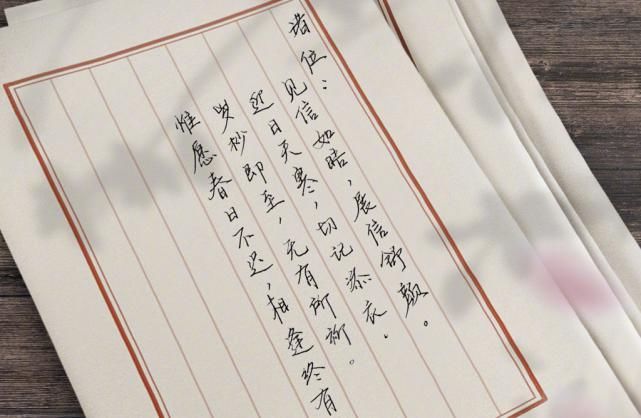 诸位：
见信如晤，展信舒颜。
近日天寒，切记添衣。
岁杪即至，无有所柳。
惟愿春日不迟，相逢终有